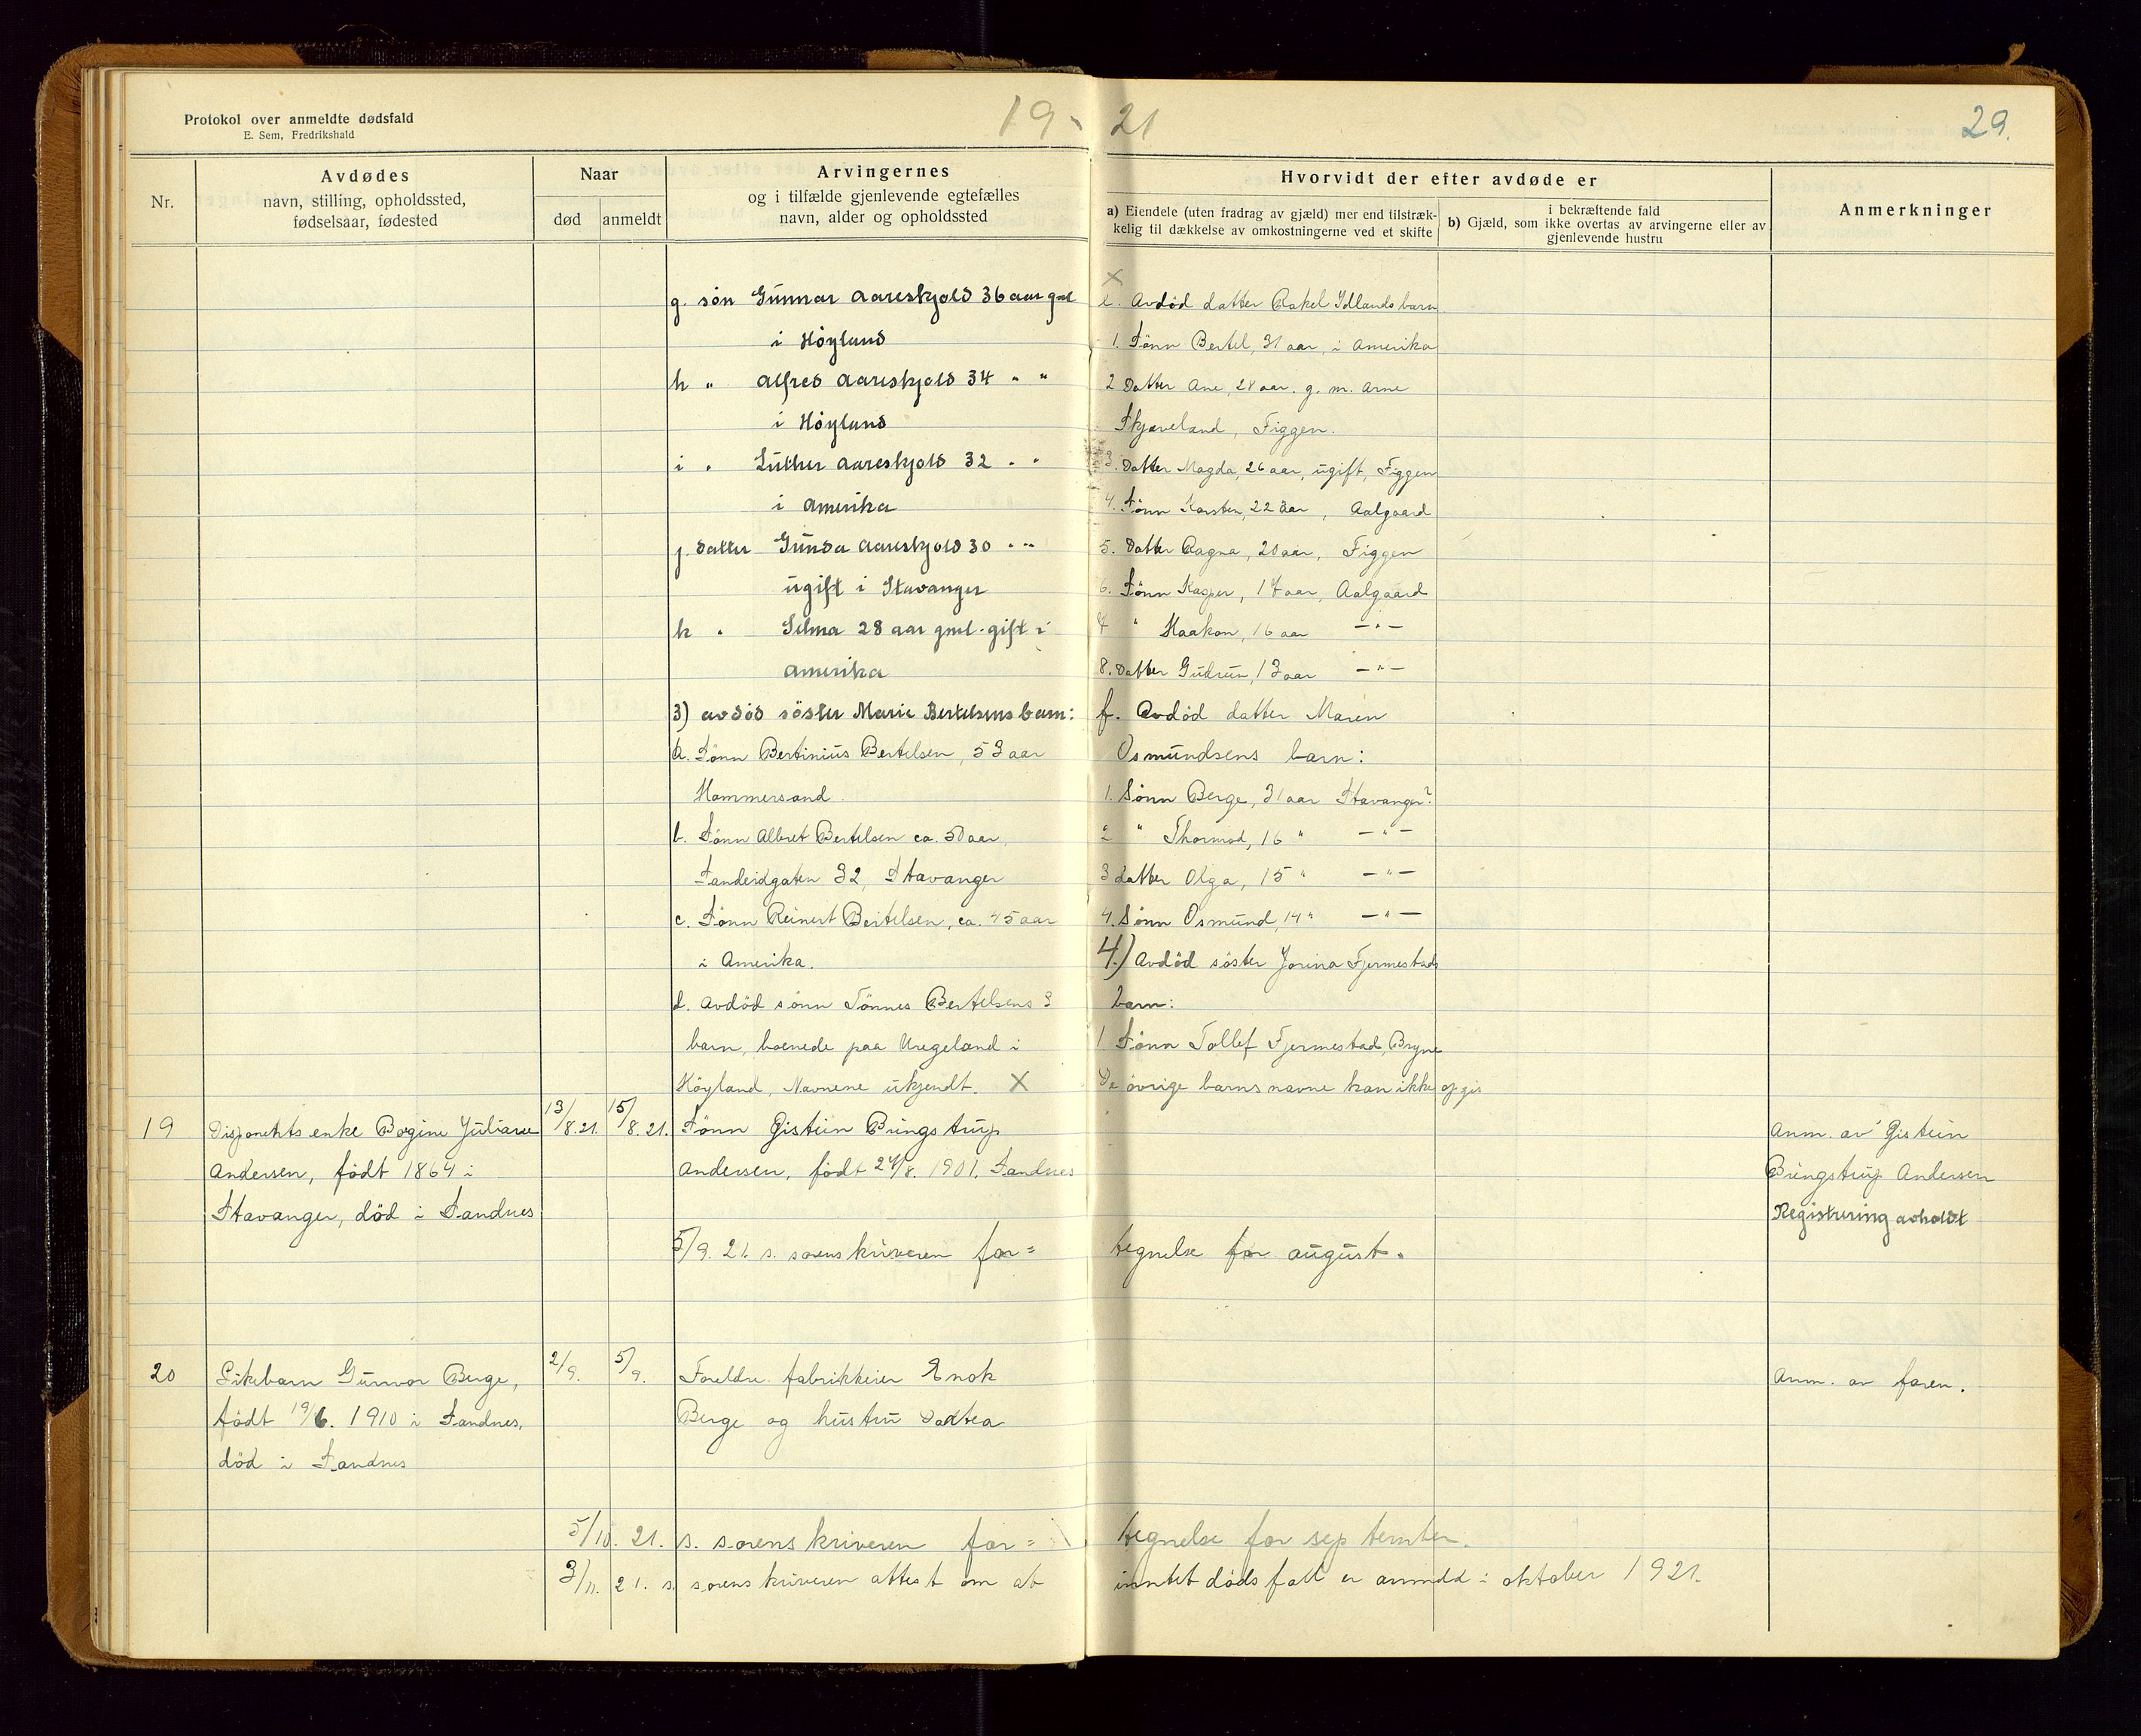 Protokol over anmeldte dødsfald
E. Sem, Fredrikshald
19 21
29.
Nr.
Avdødes
navn, stilling, opholdssted,
fødselsaar, fødested
Naar
død
anmeldt
Arvingernes
og i tilfælde gjenlevende egtefælles
navn, alder og opholdssted
Hvorvidt der efter avdøde er
a) Eiendele (uten fradrag av gjæld) mer end tilstræk-
kelig til dækkelse av omkostningerne ved et skifte
i bekræftende fald
b) Gjæld, som ikke overtas av arvingerne eller av
gjenlevende hustru
Anmerkninger
g. søn Gunnar Aareskjold 36 aar gml
i Höyland
h " Alfred Aareskjold 34 " "
i Höyland
i " Luther Aareskjold 32 " "
i Amerika
j. datter Gunda Aareskjold 30 " "
ugift i Stavanger
k " Selma 28 aar gml. gift i
Amerika
3) avdöd söster Marie Bertelsens barn:
a. Sönn Bertinius Bertelsen, 53 aar
Hommersand.
b. Sönn Albret Bertelsen ca. 50 aar,
Sandeidgaten 32, Stavanger
c. Sönn Reinert Bertelsen, ca. 45 aar
i Amerika.
d. Avdöd sönn Tönnes Bertelsens 3
barn, boende paa Uregeland i
Höyland, Navnene ukjendt. X
X
e. Avdöd datter Rakel Idlands barn
1. Sönn Bertel, 31 aar, i Amerika
2 Datter Ane, 28 aar. g. m. Arne
Skjæveland, Figgen.
3. Datter Magda, 26 aar, ugift, Figgen
4. Sönn Karsten, 22 aar, Aalgaard
5. Datter Ragna, 20 aar, Figgen
6. Sönn Kasper, 17 aar, Aalgaard
7 " Haakon, 16 aar —"—
8. Datter Gudrun, 13 aar —"—
f. Avdöd datter Maren
Osmundsens barn:
1. Sönn Berge, 31 aar Stavanger?
2 " Thormod, 16 " —"—
3 datter Olga, 15 " —"—
4. Sönn Osmund, 14 " —"—
4.) Avdöd söster Jorina Fjermestads
barn:
1. Sönn Tollef Fjermestad, Bryne
De övrige barns navne kan ikke opgis
19 Disponents enke Bogine Juliane 13/8.21. 15/8.21. Sönn Eistein Bringstrup
Andersen, födt 1864 i Andersen, födt 27/8. 1901. Sandnes
Stavanger, död i Sandnes
Anm. av Eistein
Bringstrup Andersen
Registrering avholdt
5/9. 21. s. sorenskriveren for= tegnelse for august.
20 Pikebarn Gunvor Berge, 2/9. 5/9. Foreldre fabrikkeier Enok Anm. av faren.
födt 19/6. 1910 i Sandnes, Berge og hustru Dortea
död i Sandnes
5/10. 21. s. sorenskriveren for= tegnelse for september.
3/11. 21. s. sorenskriveren attest om at inntet dödsfall er anmeldt i oktober 1921.